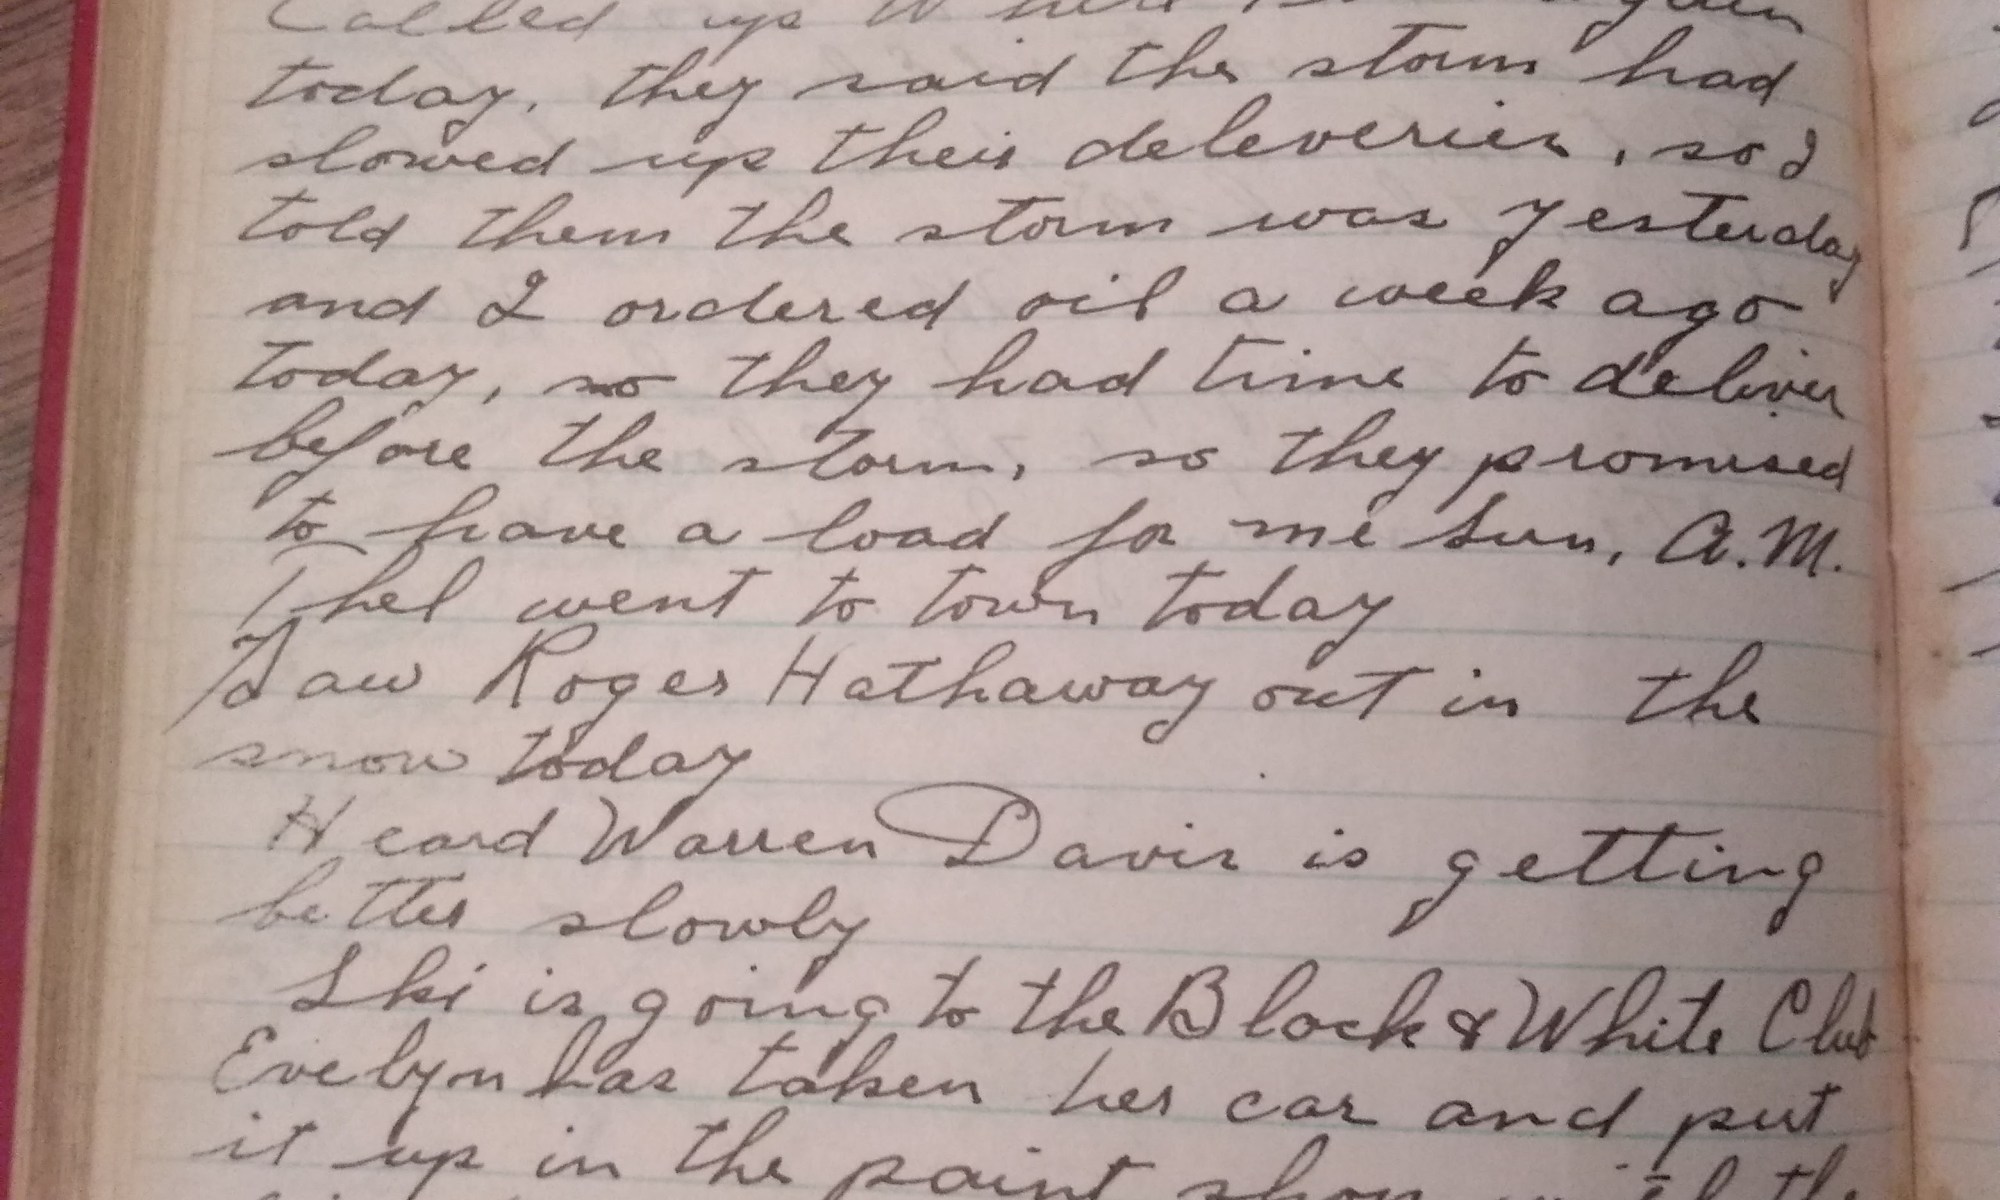 Called up
today, they said the storm had
slowed up their deleveries, so I
told them the storm was yesterday
and I ordered oil a week ago
today, so they had time to deliver
before the storm, so they promised
to have a load for me Sun, A.M.
Thel went to town today
Saw Roger Hathaway out in the
snow today
Heard Warren Davis is getting
better slowly
Ski is going to the Black & White Club
Evelyn has taken her car and put
it up in the paint shop